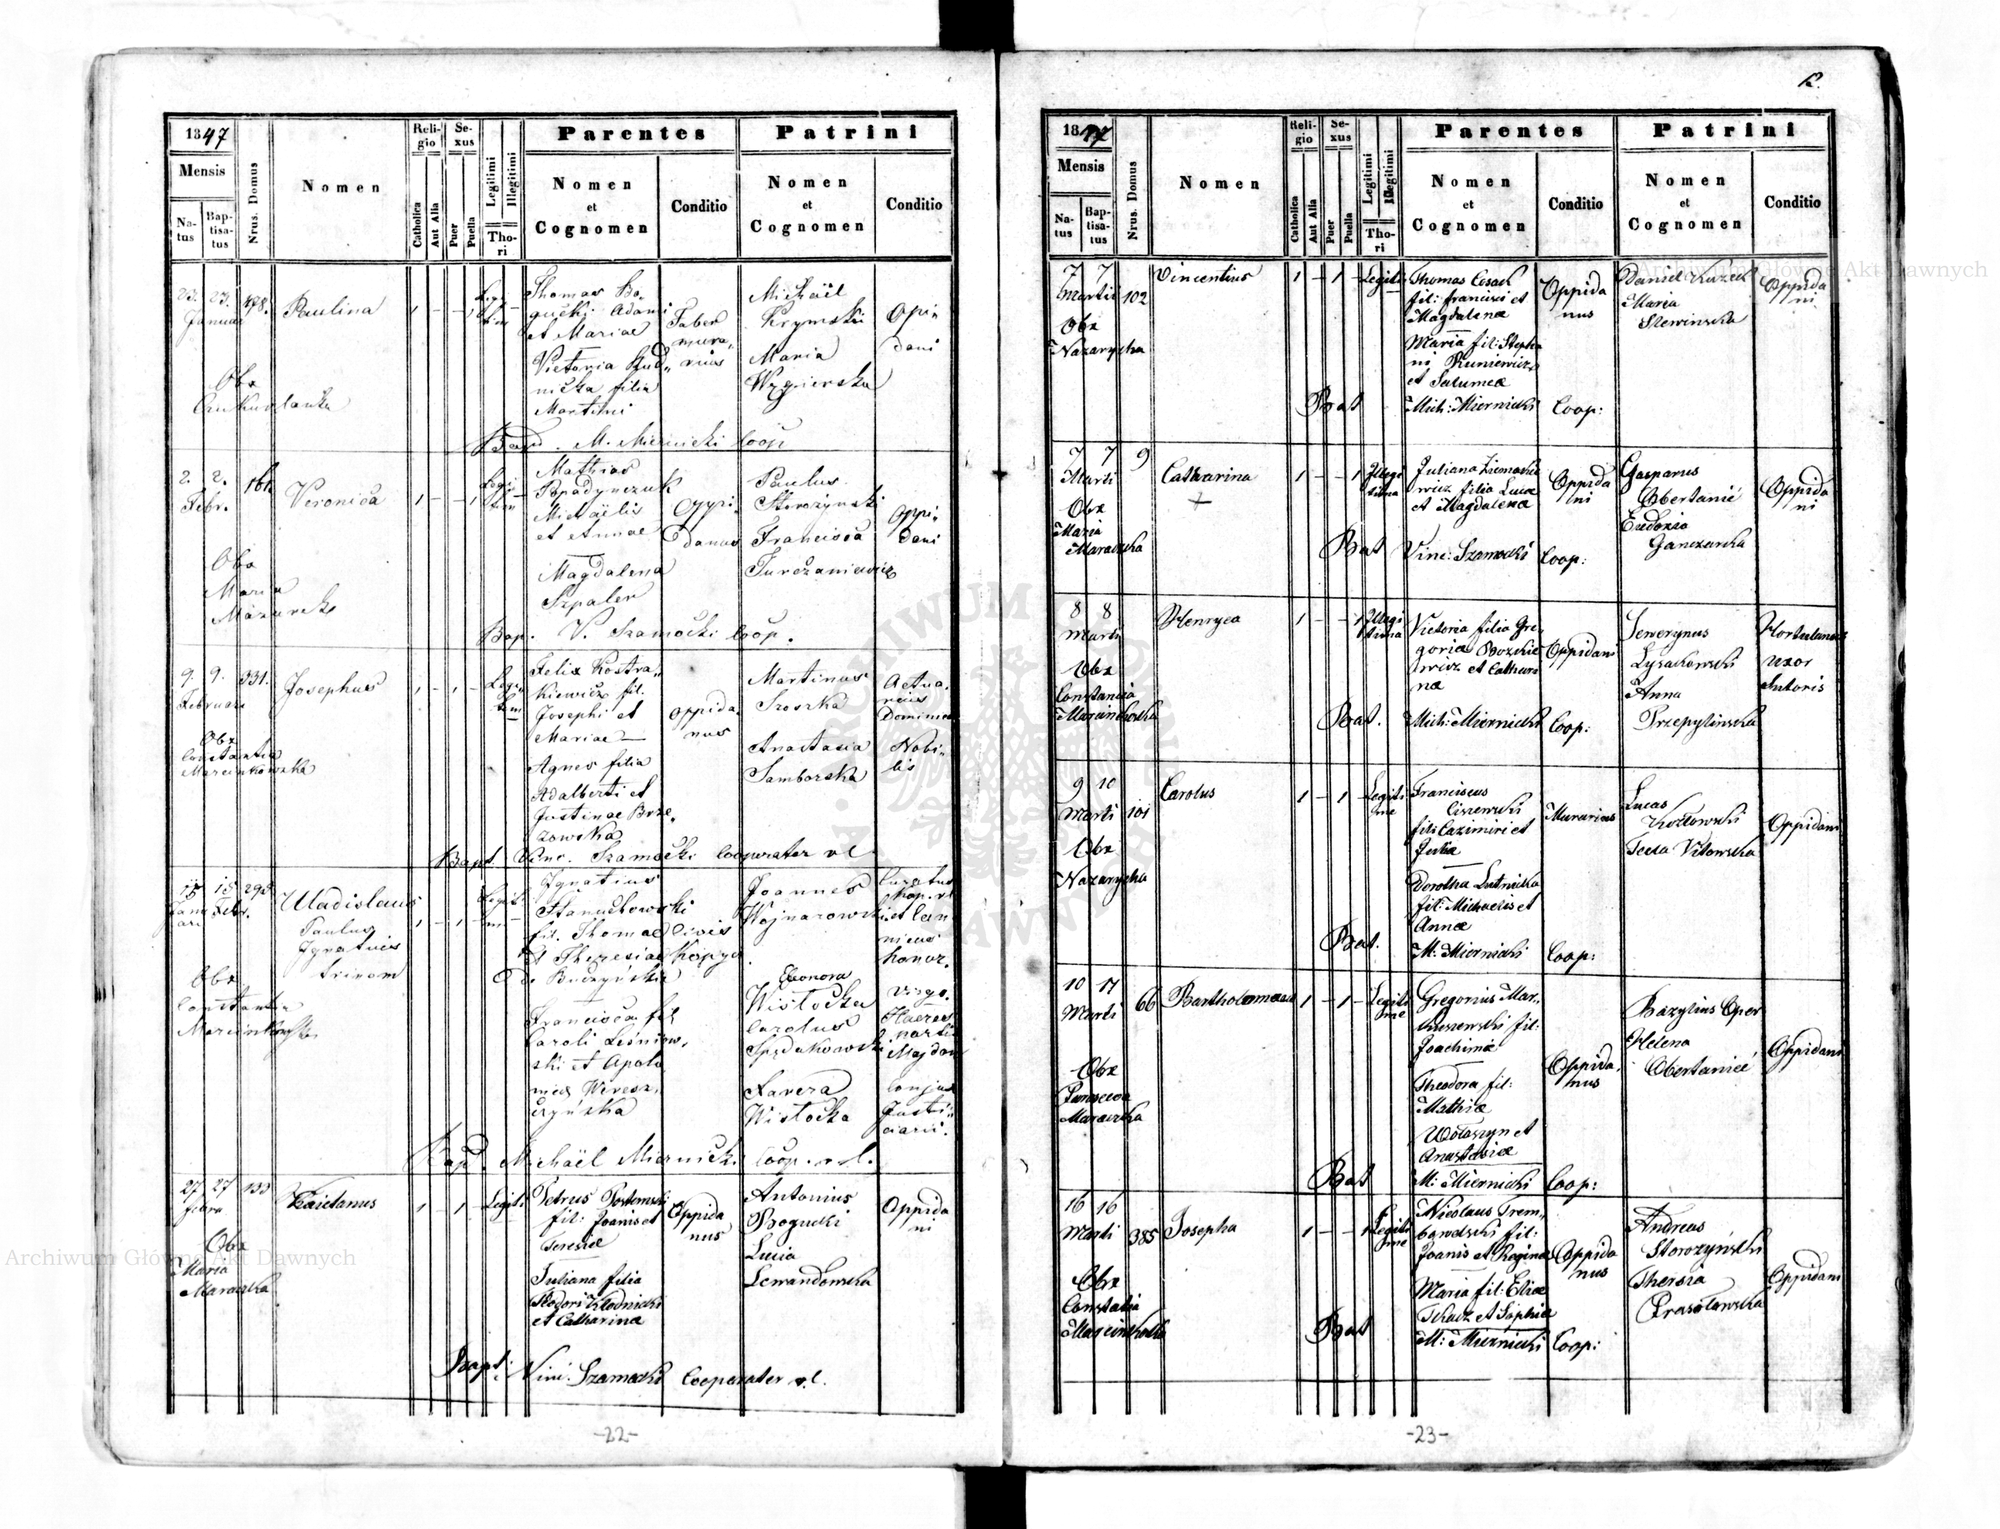 1847
Mensis
Na-
tus
Bap-
tisa-
tus
Nrus. Domus
Nomen
Reli-
gio
Catholica
Aut Alia
Se-
xus
Puer
Puella
Legitimi
Illegitimi
Tho-
ri
Parentes
Nomen
et
Cognomen
Conditio
Patrini
Nomen
et
Cognomen
Conditio
23. 23.
Januar
Obx
Paulina
1 - - 1
Legi-
tim
Thomas Bo-
gucki Adami
et Mariae
Victoria Rud-
nicka filia
Martini
Faber
mura-
rius
Michaël
Krymski
Maria
Węgierska
Opi-
dani
Bapt. M. Miernicki Coop
2. 2.
Febr.
Obx
Maria
Veronica
1 - - 1
Legi-
tim
Mathias
Popadynczuk
Michaëlis
et Annae
Magdalena
Szpaler
Oppi-
danus
Paulus
Storożynski
Francisca
Turczaniewicz
Oppi-
dani
Bap. V. Szamocki Coop.
9. 9. 331.
Februari
Obx
Constantia
Marcinkowska
Josephus
1 - 1 -
Legi-
tim
Felix Kostra-
kiewicz fil.
Josephi et
Mariae
Agnes filia
Adalberti et
Justinae Brze-
zowska
Oppida-
nus
Martinus
Szoszka
Anastasia
Samborska
Actua-
rius
Dominica
Nobi-
lis
Bapt. Vinc. Szamocki Cooperator r.l.
15 15
Janu Febr.
ari
Obx
Constantia
Uladislaus
Paulus
Ignatius
trinom
1 - 1 -
Legit.
Ignatius
Stanuchowski
fil. Thomae
et Theresiae
de Buczyńskie
Francisca fil
Caroli Leśniow-
ski et Apolo-
niae Weresz-
czyńska
Civis
Joannes
Wojnarowski
Eleonora
Wistocka
Carolus
Spędakowski
Xavera
Wistocka
Curatus
et Can-
nicus
honor.
Virgo.
Majdan
Conjux
Justi-
ciarii.
Bapt. Michaël Miernicki Coop. r.l.
27 27 133
Febru
Obx
Maria
Maraczka
Kaietanus
1 - 1 -
Legiti
Petrus
fil: Joanis et
Teresiae
Juliana filia
Kłodnicki
et Catharinae
Oppida
nus
Antonius
Bogucki
Lucia
Lewandowska
Oppida
ni
Bapt: Vinc: Szamocki Cooperator r.l.
-22-
12
1847
Mensis
Na-
tus
Bap-
tisa-
tus
Nrus. Domus
Nomen
Reli-
gio
Catholica
Aut Alia
Se-
xus
Puer
Puella
Legitimi
Illegitimi
Tho-
ri
Parentes
Nomen
et
Cognomen
Conditio
Patrini
Nomen
et
Cognomen
Conditio
7 7
Martii 102
Obx
Nazarycha
Vincentius
1 - 1 -
Legiti
Thomas Cosach
fil: Francisci et
Magdalenæ
Maria fil: Stepha
ni Runiewicz
et Salumeæ
Oppida
nus
Daniel Kuzek
Maria
Slewinska
Oppida
ni
Bat Mich: Miernicki Coop:
7 7 9
Marti
Obx
Maria
Maraczka
Catharina
+
1 - - 1
Illegi
tima
Juliana
wicz filia Lucæ
et Magdalenæ
Oppida
ni
Gasparus
Obertanić
Eudoxia
Ganczarska
Oppida
ni
Bat Vinc: Szamocki Coop:
8 8
Marti
Obx
Constancia
Marcinkoska
Henryca
1 - - 1
Illegi
tima
Victoria filia Gre-
goriæ Bozkie
wicz et Cathari
næ
Oppidani
Sewerynus
Lysakowski
Anna
Przepylinska
Hortulanus
uxor
Bat. Mich: Miernicki Coop:
9 10
Marti 101
Obx
Nazarycha
Carolus
1 - 1 -
Legiti
me
Franciscus
Ciszewski
fil: Cazimiri et
Dorotha Lutnicka
fil: Michaelis et
Annæ
Murarius
Lucas
Kozłowski
Tecla Vitowska
Oppidani
Bat. M: Miernicki Coop:
10 17
Marti 66
Obx
Parasceva
Maraczka
Bartholomaeus
1 - 1 -
Legiti
me
Gregorius Mar-
kuszewski fil:
Joachimæ
Theodora fil:
Mathiæ
Wołoszyn et
Anastasiæ
Oppida-
nus
Bazylius Oper
Helena
Obertanicé
Oppidani
Bat M: Miernicki Coop:
16 16
Marti 385
Obx
Constatia
Marcinkoska
Josepha
1 - - 1
Legiti
me
Nicolaus Trem-
bowelski fil:
Joanis et Reginæ
Maria fil: Eliæ
Tkacz et Sophiæ
Oppida
nus
Andreas
Storozyński
Theresa
Prasołowska
Oppidani
Bat M: Miernicki Coop:
-23-
Archiwum Główne Akt Dawnych
Archiwum Główne Akt Dawnych
ARCHIWUM GŁÓWNE AKT DAWNYCH